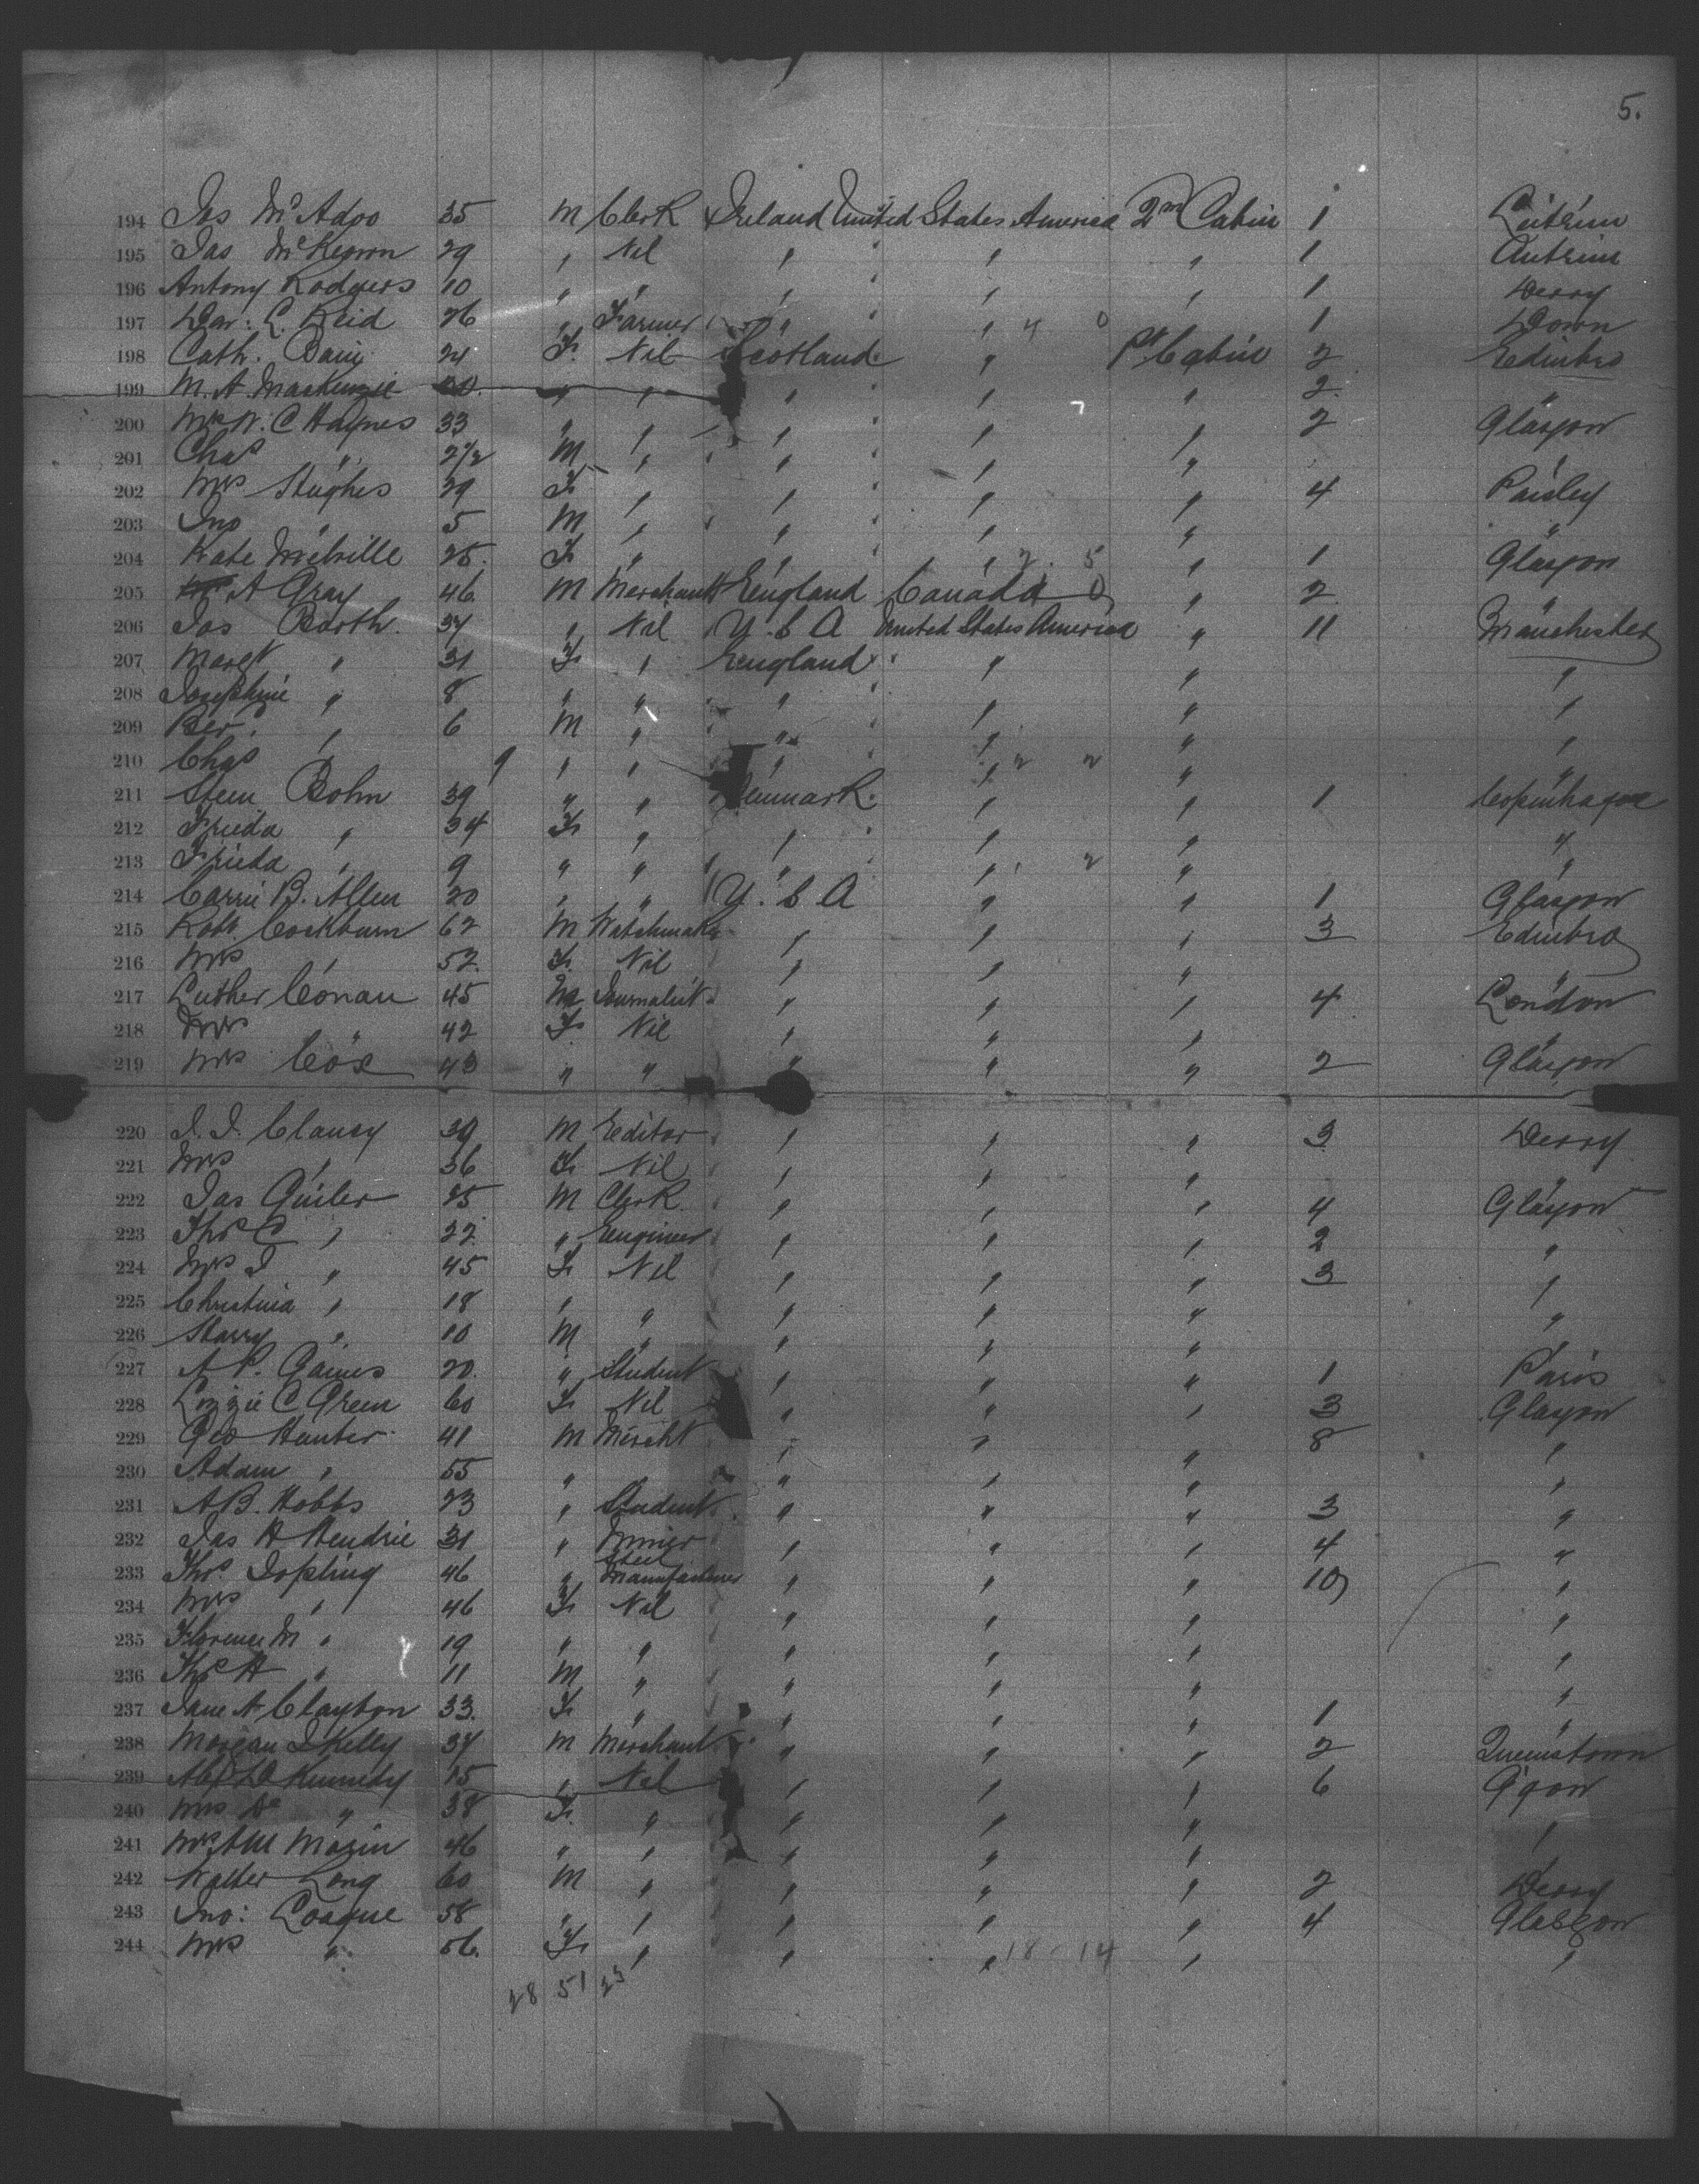 5.
194 Jas McAdoo 35 M Clerk Ireland United States America 2nd Cabin 1 Leitrim
195 Jas McKeown 29 " Nil " " " 1 Antrim
196 Antony Rodgers 10 " " " " " 1 Derry
197 L. Reid 26 " Farmer " " 4 0 " 1 Down
198 Cath. 24 F. Nil Scotland " 1st Cabin 2 Edinbro
199 M. A. Mackenzie " " " " " 2 "
200 Mrs W. C Haynes 33 " " " " " 2 Glasgow
201 Chas " 2½ M " " " " "
202 Mrs Hughes 29 F " " " " 4 Paisley
203 Jno " 5 M " " " " "
204 Kate Melville 25. F " " " 2 5 " 1 Glasgow
205 A Gray 46 M Merchant England Canada 0 " 2 "
206 Jas Barth. 37 " Nil U. S. A United States America " 11 Manchester
207 Margt " 31 F " England " " "
208 Josephine " 8 " " " " " "
209 " 6 M " " " " "
210 Chas " 9 " " " " 2 2 " "
211 Stein Bohn 39 " " Denmark " " 1 Copenhagen
212 Frieda " 34 F " " " " "
213 Frieda " 9 " " " " 2 " "
214 Carrie B. Allen 20 " " U. S. A " " 1 Glasgow
215 Robt Cockburn 62 M Watchmaker " " " 3 Edinbro
216 Mrs " 52. F. Nil " " " "
217 Luther Conan 45 M Journalist " " " 4 London
218 Mrs " 42 F. Nil " " " "
219 Mrs Cox 43 " " " " " 2 Glasgow
220 J. J. Clancy 39 M Editor " " " 3 Derry
221 Mrs " 36 F Nil " " " "
222 Jas Guiler M Clerk " " " 4 Glasgow
223 Thos C " 22 " Engineer " " " 2 "
224 Mrs J " 45 F Nil " " " 3 "
225 Christina " 18 " " " " " "
226 Harry " 10 M " " " " "
227 A P. Gaines 20. " Student " " " 1 Paris
228 Lizzie C Green 60 F Nil " " " 3 Glasgow
229 Geo Hunter 41 M Mercht " " " 8 "
230 Adam " 55 " " " " " "
231 A B. Hobbs 23 " Student " " " 3 "
232 Jas H Hendrie 31 " " " " 4 "
233 Thos. Jopling 46 " Steel Manufacturer " " " 10 "
234 Mrs " 46 F Nil " " " "
235 Florence M " 19 " " " " " "
236 Thos H " 11 M " " " " "
237 Jane A Clayton 33. F " " " " 1 "
238 Morgan J Kelly 37 M Merchant " " " 2 Queenstown
239 Kennedy 15 " Nil " " " 6 G'gow
240 Mrs " 38 F. " " " " "
241 Mrs 46 " " " " " "
242 Walter Long 60 M " " " " 2 Derry
243 Jno: Loague 58 " " " " " 4 Glasgow
244 Mrs " 56. F " " " 18 - 14 " "
28 51 23